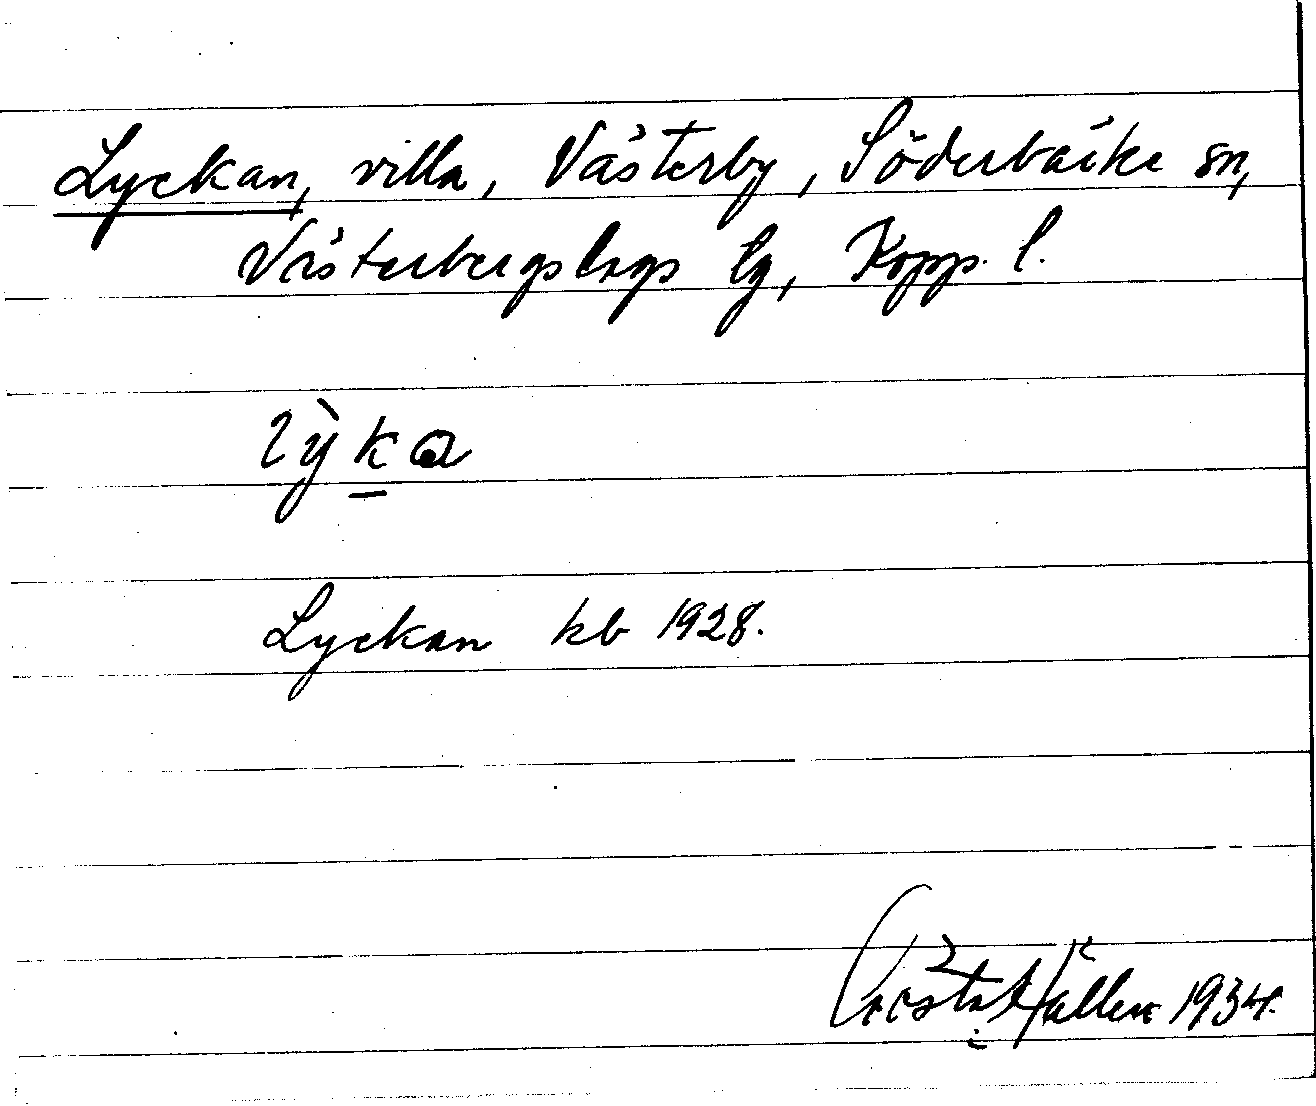 Lyckan, villa, Västerby, Söderbärke sn,
Västerbergslags lg, Kopp. l.
lỳka
Lyckan kb 1928.
Gösta Hallén 1934.